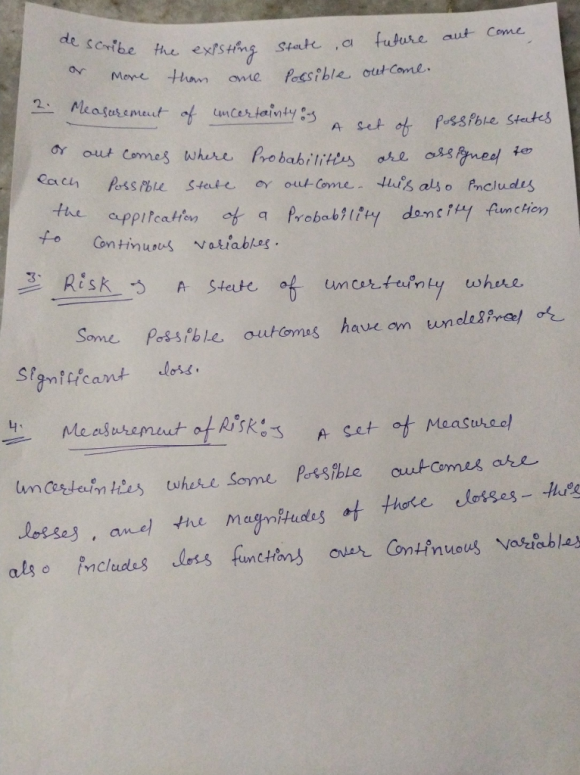 describe the existing state, a future out come
or more than one possible outcome.
2. Measurement of uncertainty:→ A set of possible states
or out comes where Probabilities are assigned to
each possible state or outcome - this also includes
the application of a Probability density function
to continuous variables.
3. Risk → A state of uncertainty where
Some Possible outcomes have an undesired or
significant loss.
4. Measurement of Risk:→ A set of Measured
uncertainties where some possible outcomes are
losses, and the magnitudes of those losses - this
also includes loss functions over continuous variables